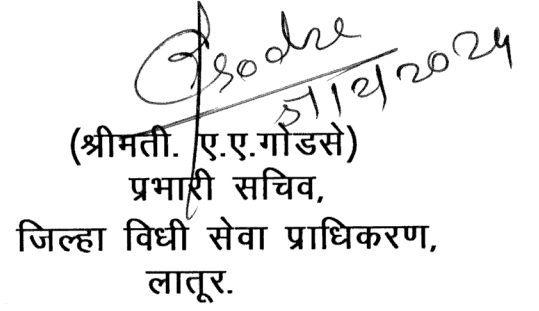 (श्रीमती. ए.ए.गोडसे)
प्रभारी सचिव,
जिल्हा विधी सेवा प्राधिकरण,
लातूर.